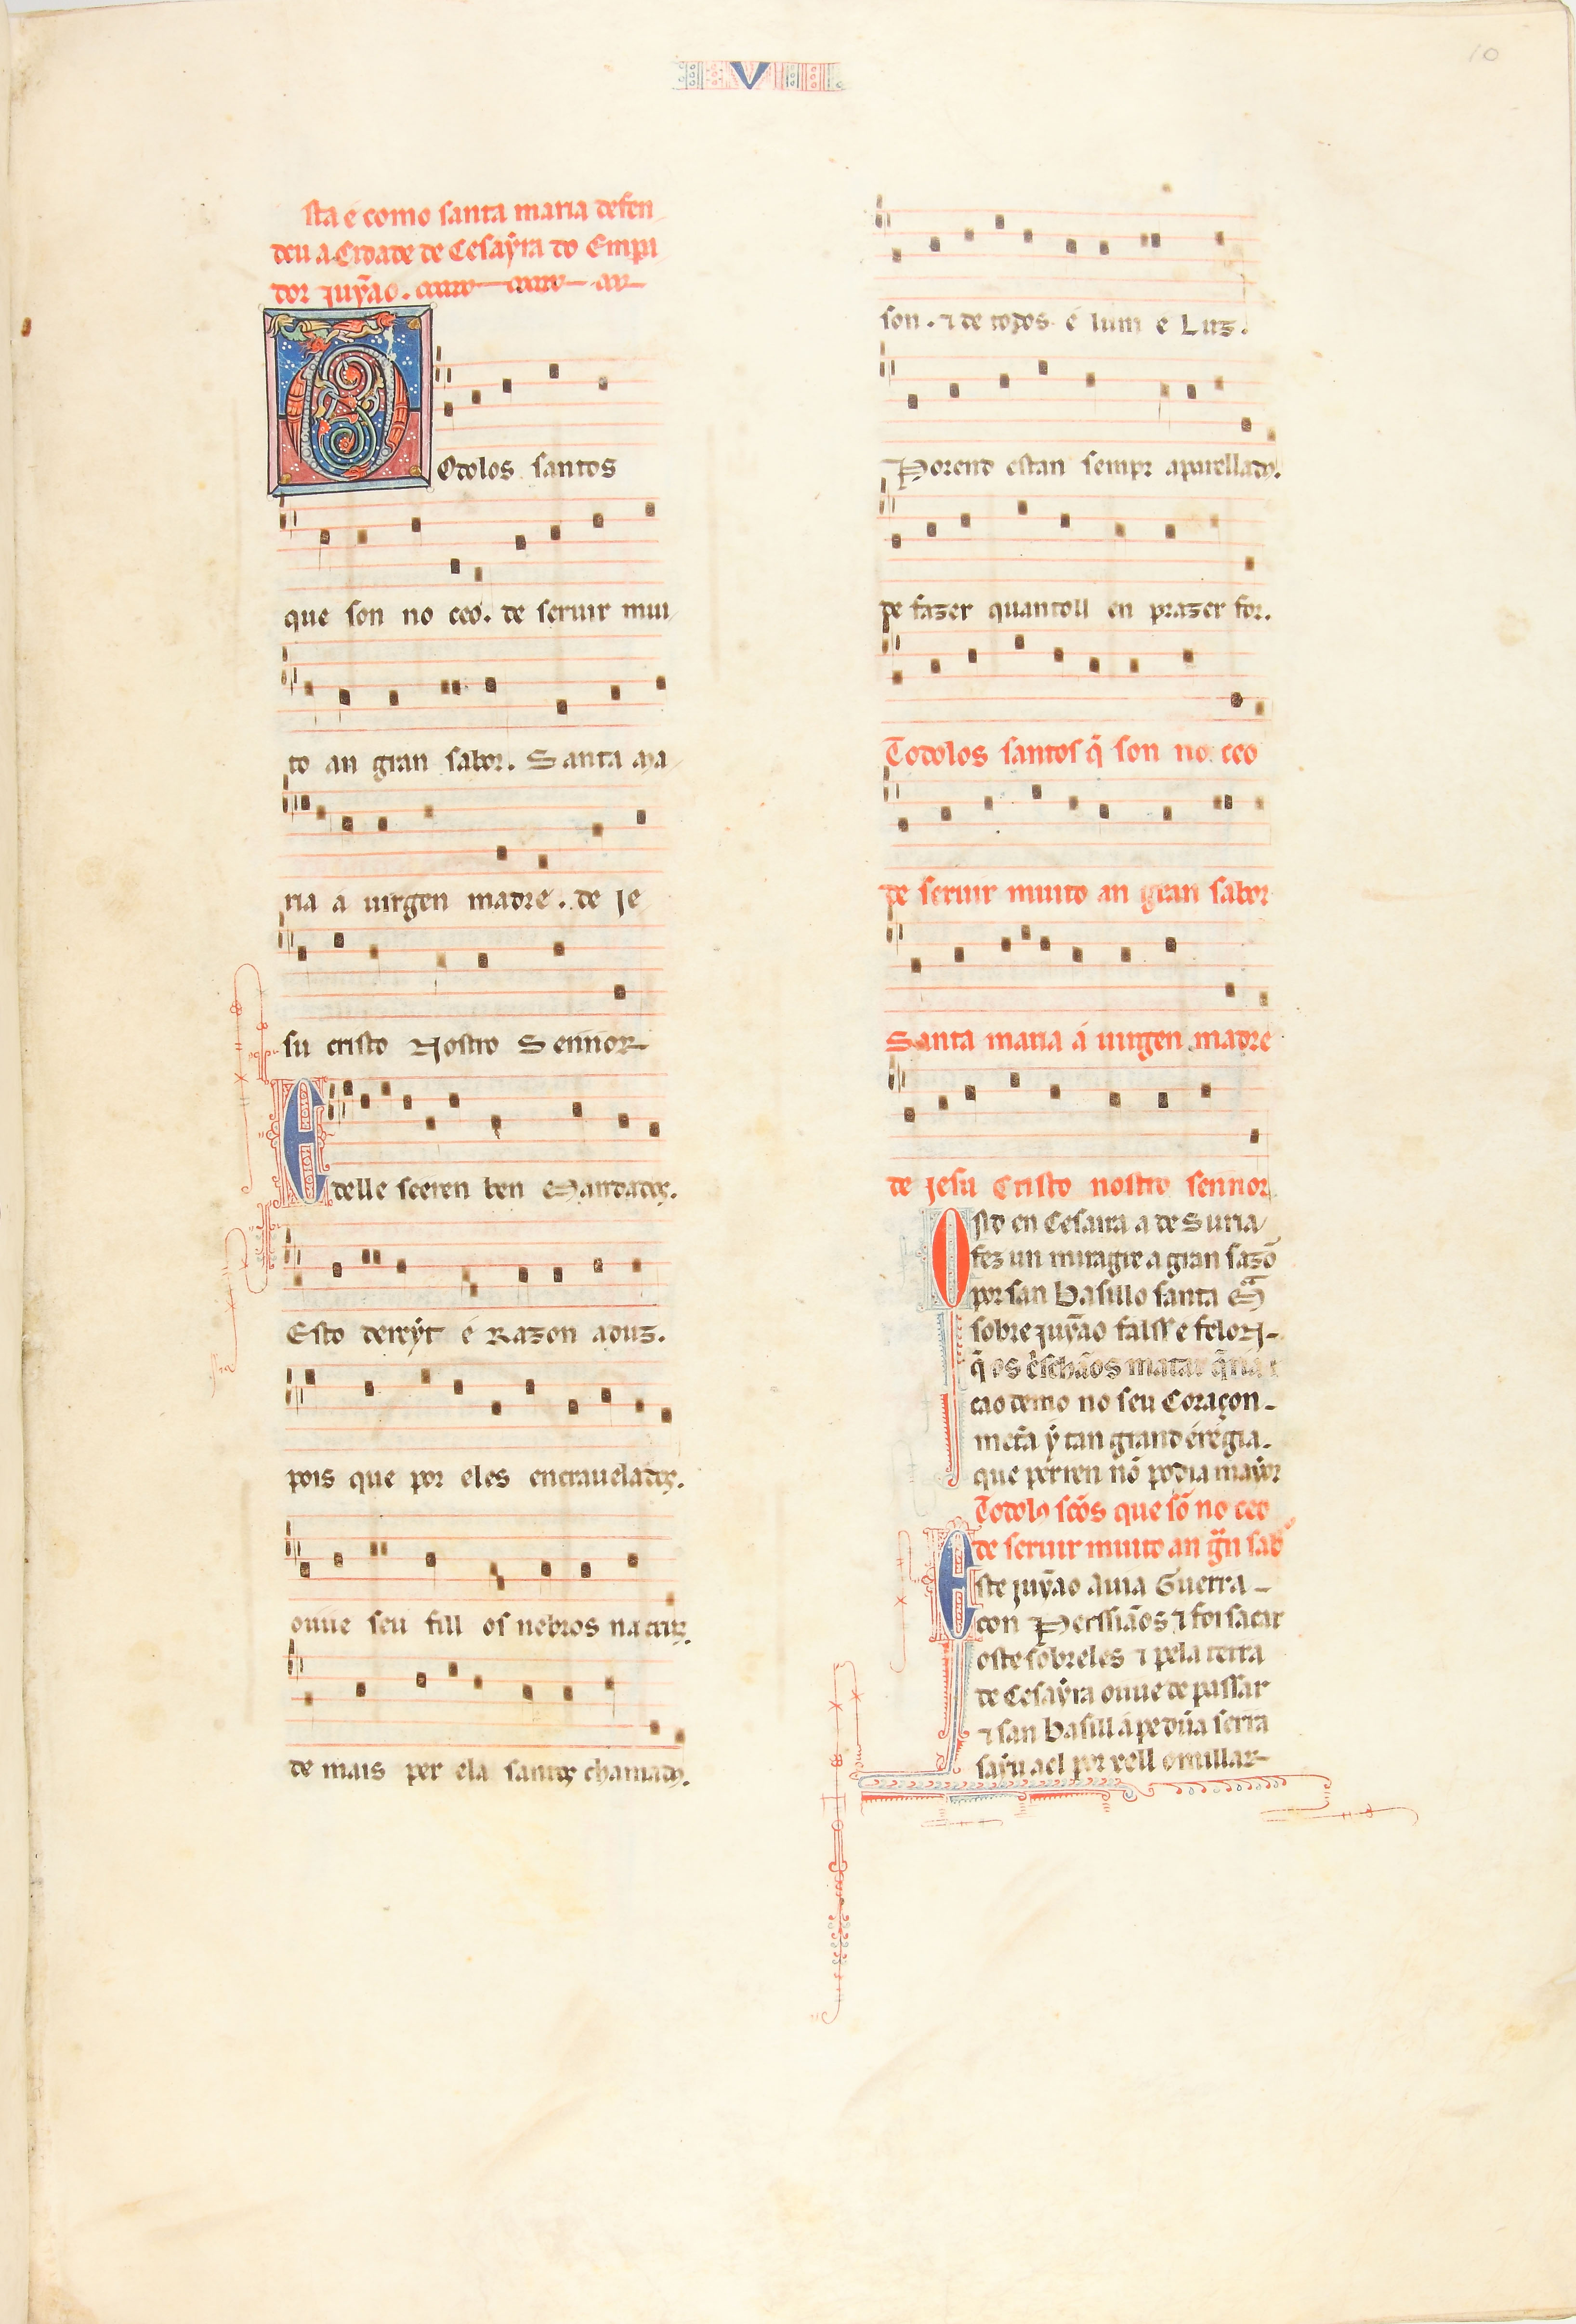 V
10
sta é como santa maria defen
deu a Cidade de Cesaỹra do Empa
dor juỹao.
Odolos santos
que son no ceo. de seruir mui
to an gran sabor. Santa Ma
ria a uirgen madre. de Je
su cristo Nostro Sennor
E delle seeren ben Mandados.
Esto dereyt é Razon aduz.
pois que por eles encrauelados.
ouue seu fill os nebros na cruz.
de mais per ela santos chamados.
son. ⁊ de todos é lum e Luz.
Porend estan sempr aparellados.
de fazer quantoll en prazer for.
Todolos santos q̃ son no ceo
de seruir muito an gran sabor
Santa maria á uirgen madre
de jesu Cristo nostro sennor
Osto en Cesaira a de Suria
fez un miragre a gran sazõ
por san Basillo santa Mª
sobre juỹao falsse felon
q̃ os crischãos matar q̃ria
cao demo no seu Coraçon
met̃a ỹ tan grand érégia.
que per ren nõ podia mayor
Todolos scõs que sõ no ceo
de seruir muito an gñ sab
Este juỹao auia Guerra
con Perssiãos ⁊ foi sacar
oste sobreles ⁊ pela terra
de Cesaỹra ouue de passar
⁊ san Basill á pe dũa serra
saỹu ael por rell omillar